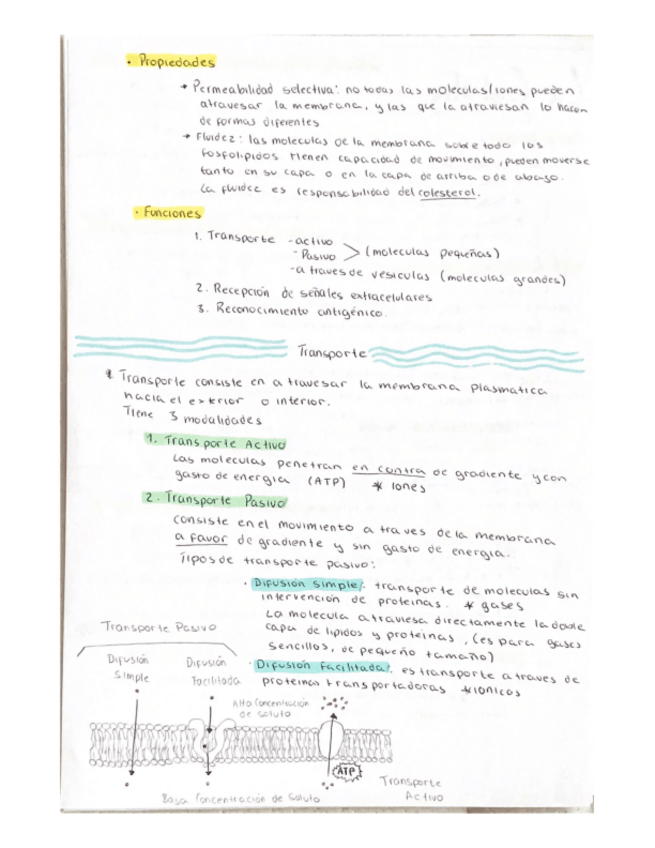 · Propiedades
→ Permeabilidad selectiva: no todas las moleculas/iones pueden
atravesar la membrana, y las que la atraviesan lo hacen
de formas diferentes
→ Fluidez: las moleculas de la membrana sobre todo los
fosfolipidos tienen capacidad de movimiento, pueden moverse
tanto en su capa o en la capa de arriba o de abajo.
La fluidez es responsabilidad del colesterol.
· Funciones
1. Transporte - activo
- Pasivo > (moleculas pequeñas)
- a traves de vesiculas (moleculas grandes)
2. Recepción de señales extracelulares
3. Reconocimiento antigénico.
Transporte
* Transporte consiste en atravesar la membrana plasmatica
hacia el exterior o interior.
Tiene 3 modalidades
1. Transporte Activo
Las moleculas penetran en contra de gradiente y con
gasto de energia (ATP) * iones
2. Transporte Pasivo
Consiste en el movimiento a traves de la membrana
a favor de gradiente y sin gasto de energia.
Tipos de transporte pasivo:
· Difusión Simple: transporte de moleculas sin
intervención de proteinas. * gases
La molecula atraviesa directamente la doble
capa de lipidos y proteinas, (es para gases
sencillos, de pequeño tamaño)
· Difusión Facilitada: es transporte a traves de
proteinas transportadoras * ionicos
Transporte Pasivo
Difusión Simple
Difusión Facilitada
Alta Concentración
de soluto
ATP
Transporte
Activo
Baja Concentración de Soluto